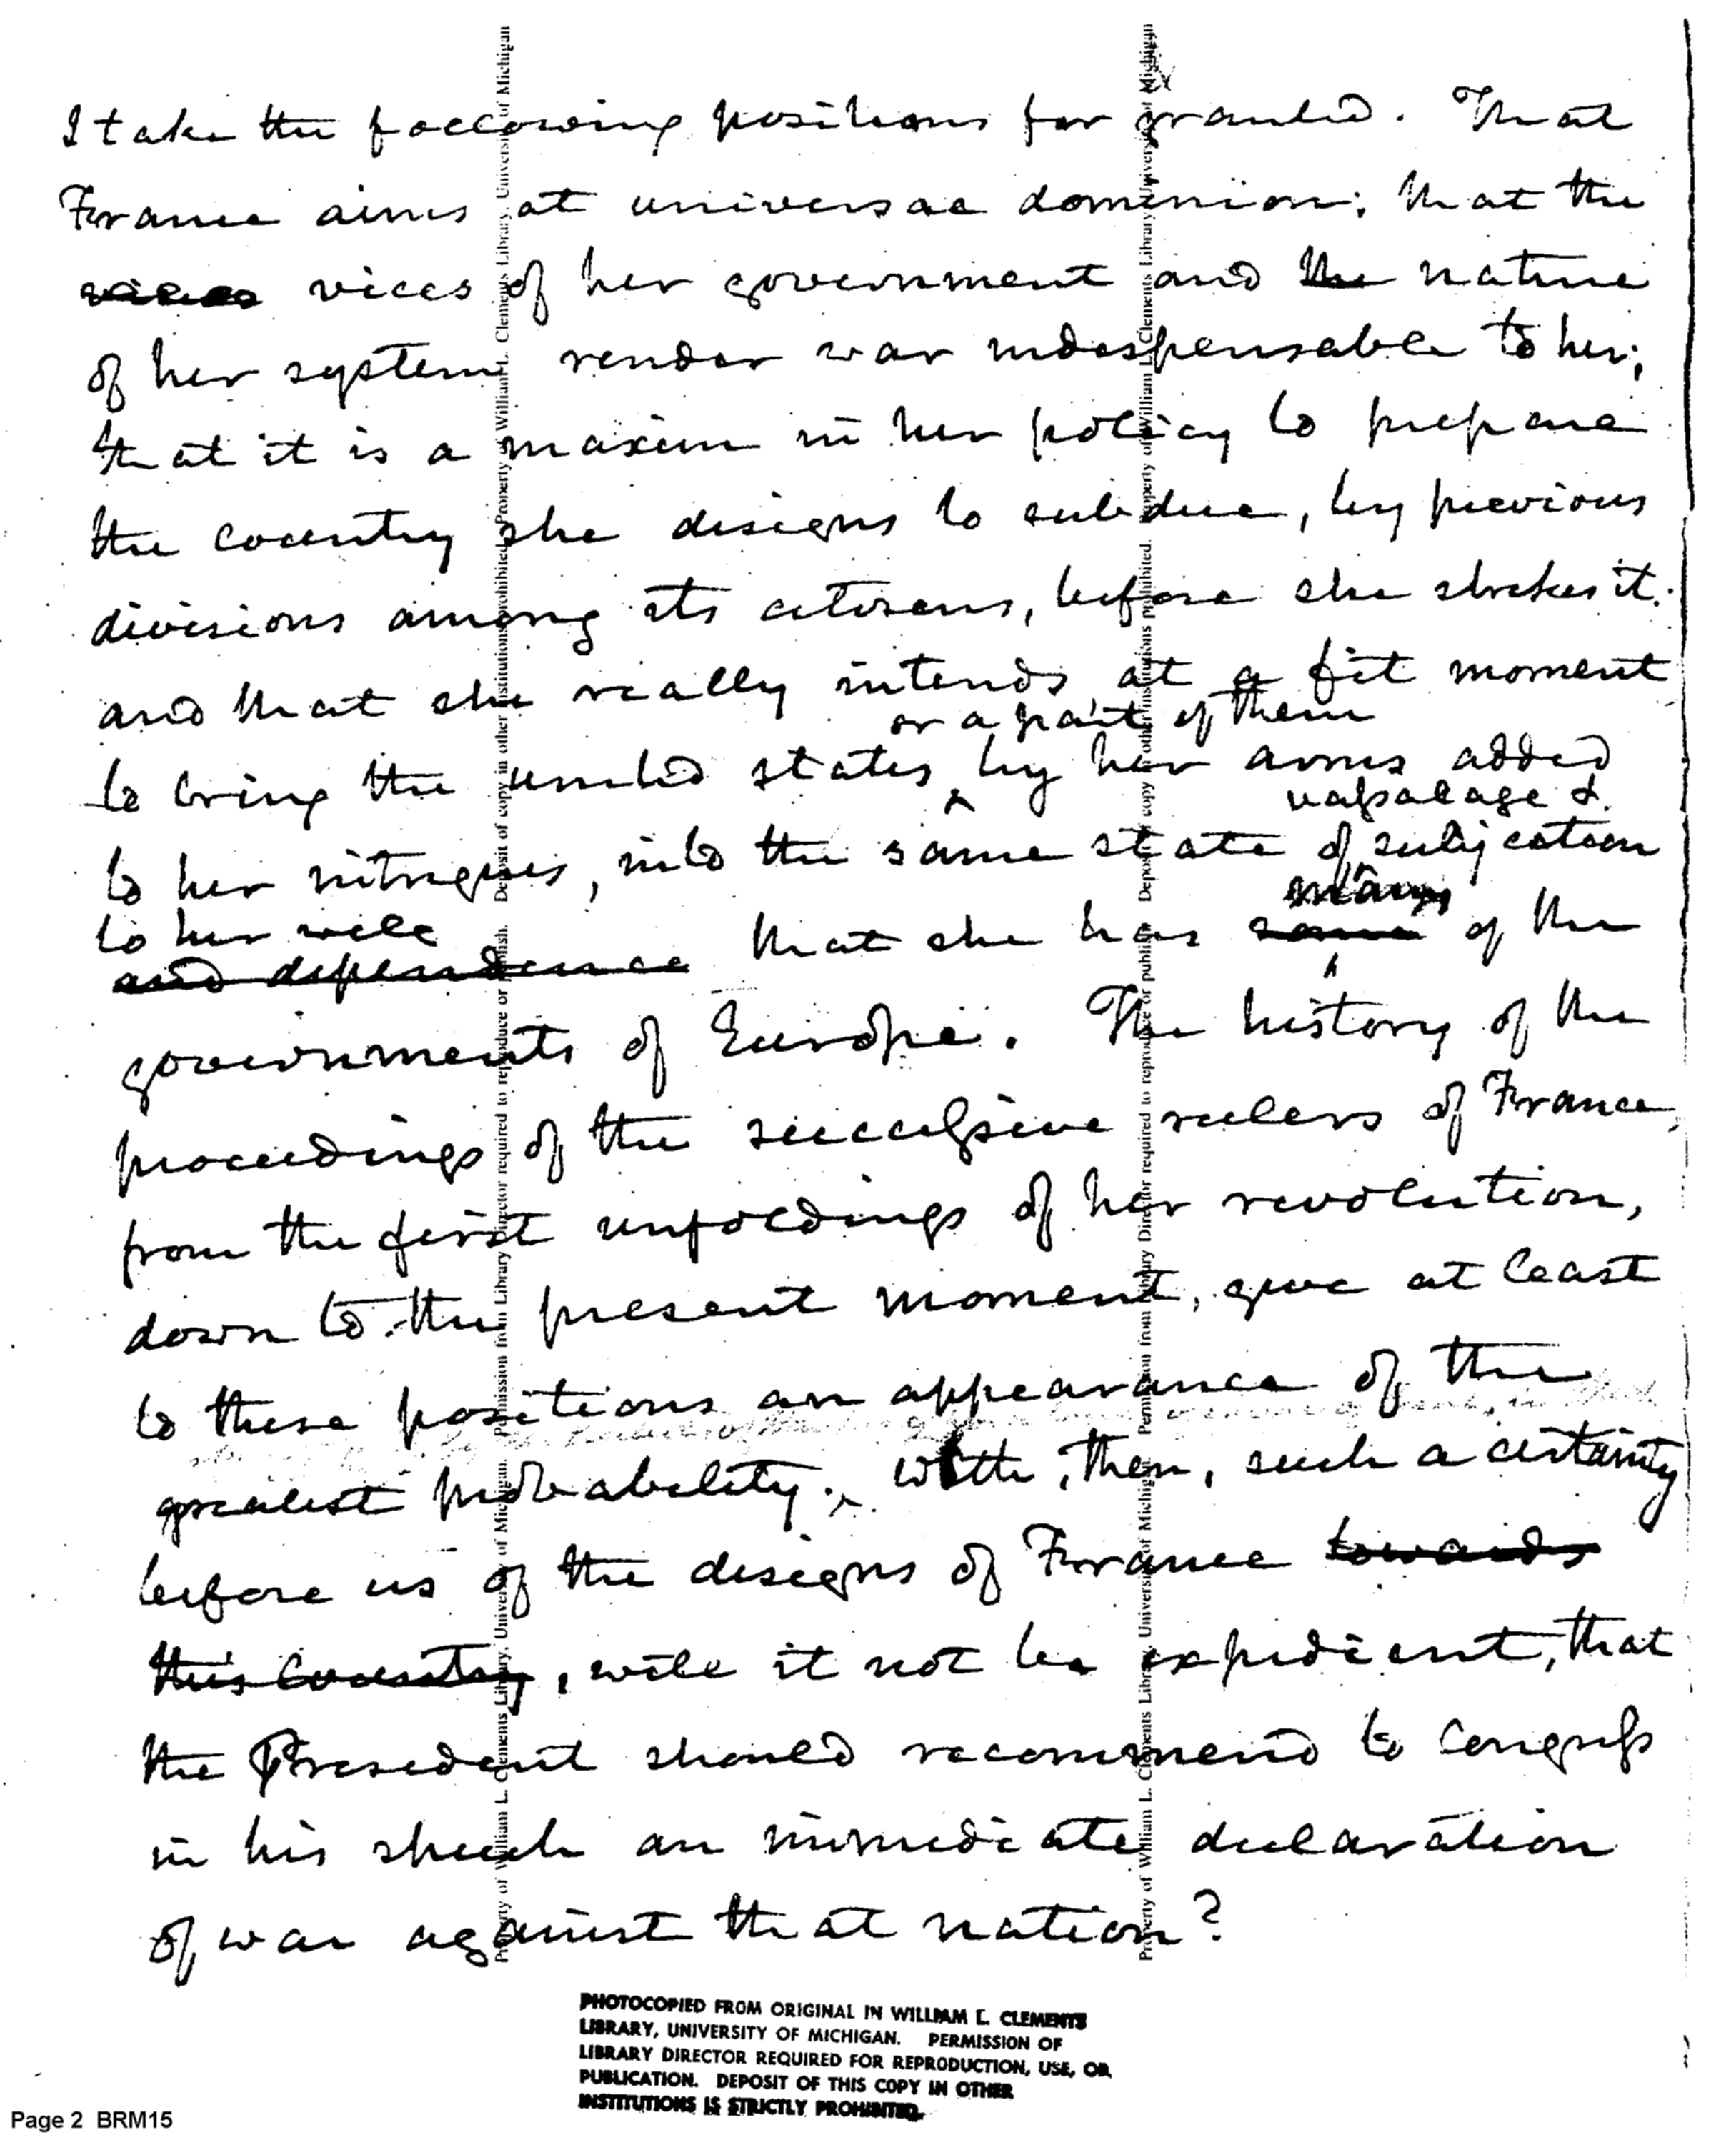 I take the following positions for granted. That
France aims at universal dominion; that the
vices vices of her government and the nature
of her system render war indespensable to her;
that it is a maxim in her policy to prepare
the country she designs to subdue, by previous
divisions among its citizens, before she strikes it:
and that she really intends at a fit moment
or a part of them
to bring the united states, by her arms added
vassalage &
to her intrigues, into the same state of subjection
many
to her will
and dependence that she has some of the
governments of Europe. The history of the
proceedings of the successive rulers of France,
from the first unfoldings of her revolution,
down to the present moment, give at least
to these positions an appearance of the
greatest probability. With, then, such a certainty
before us of the designs of France towards
this Country, will it not be expedient, that
the President should recommend to Congress
in his speech an immediate declaration
of war against that nation?
PHOTOCOPIED FROM ORIGINAL IN WILLIAM L. CLEMENTS
LIBRARY, UNIVERSITY OF MICHIGAN. PERMISSION OF
LIBRARY DIRECTOR REQUIRED FOR REPRODUCTION, USE, OR
PUBLICATION. DEPOSIT OF THIS COPY IN OTHER
INSTITUTIONS IS STRICTLY PROHIBITED.
Page 2 BRM15
Property of William L. Clements Library, University of Michigan. Permission from Library Director required to reproduce or publish. Deposit of copy in other institutions prohibited. Property of William L. Clements Library, University of Michigan
Property of William L. Clements Library, University of Michigan. Permission from Library Director required to reproduce or publish. Deposit of copy in other institutions prohibited. Property of William L. Clements Library, University of Michigan